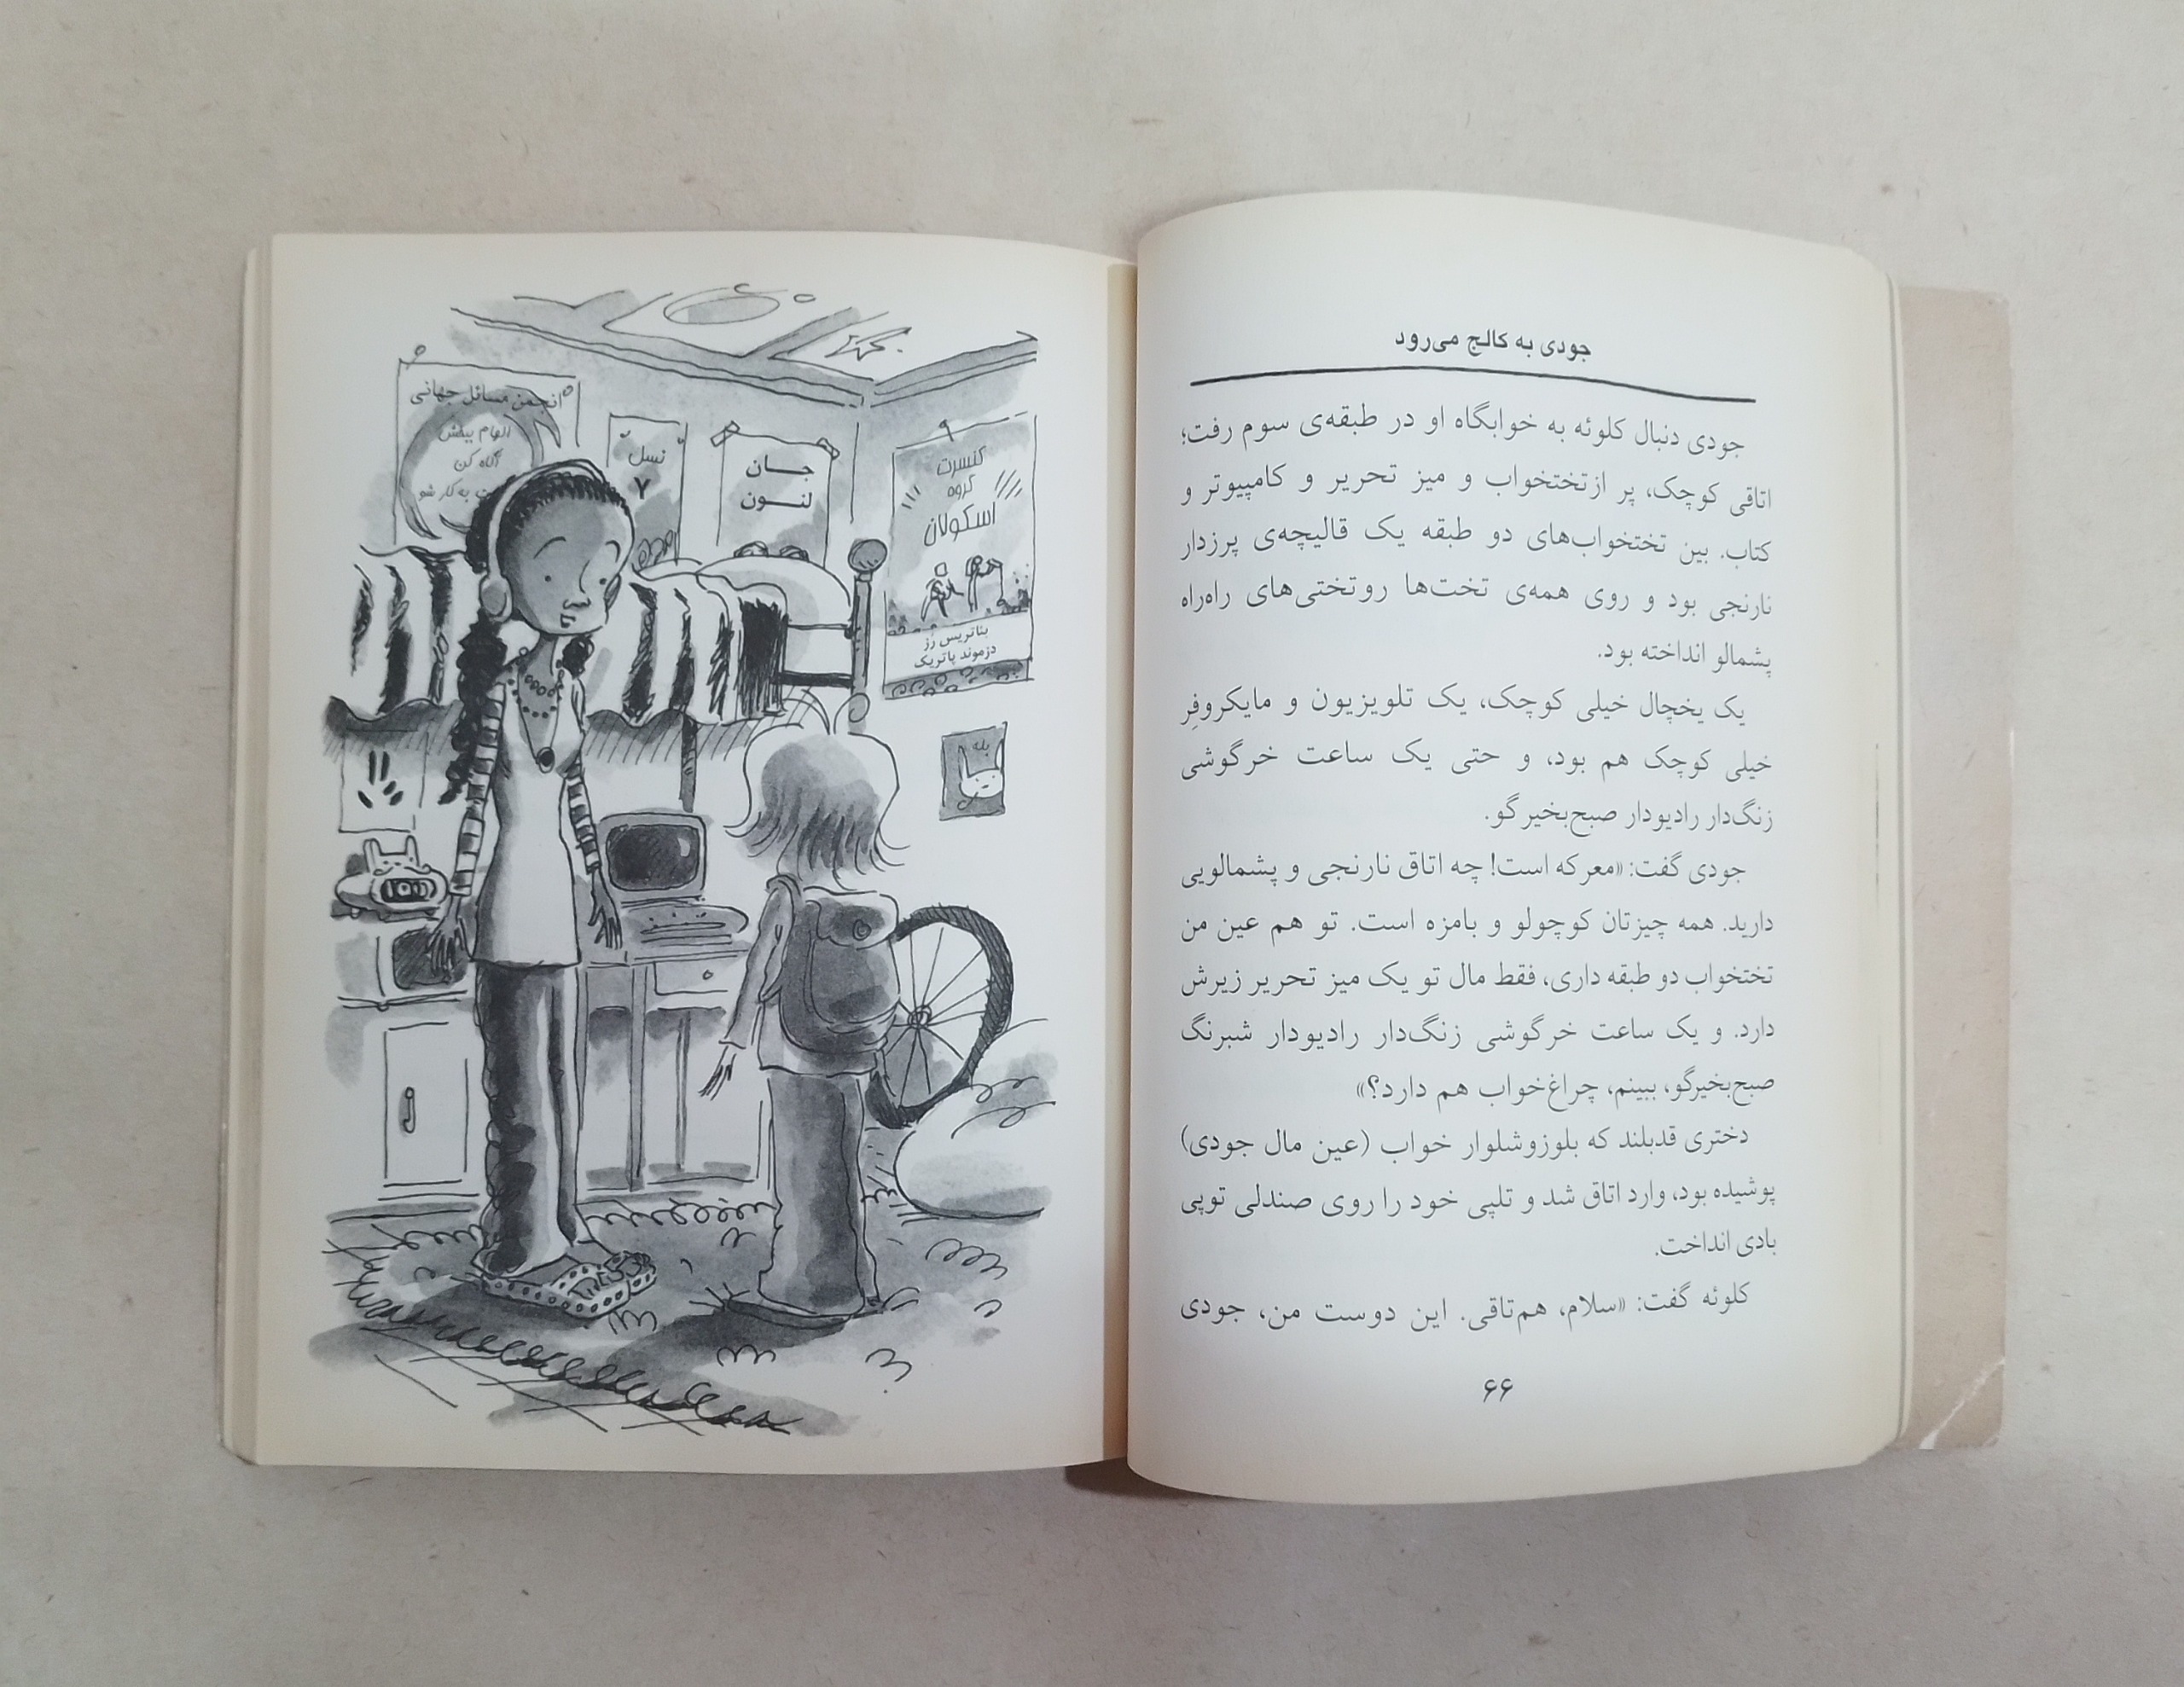 جودی به کالج می‌رود
جودی دنبال کلوئه به خوابگاه او در طبقه‌ی سوم رفت؛
اتاقی کوچک، پر ازتختخواب و میز تحریر و کامپیوتر و
کتاب. بین تختخواب‌های دو طبقه یک قالیچه‌ی پرزدار
نارنجی بود و روی همه‌ی تخت‌ها روتختی‌های راه‌راه
پشمالو انداخته بود.
یک یخچال خیلی کوچک، یک تلویزیون و مایکروفِر
خیلی کوچک هم بود، و حتی یک ساعت خرگوشی
زنگ‌دار رادیودار صبح‌بخیرگو.
جودی گفت: «معرکه است! چه اتاق نارنجی و پشمالویی
دارید. همه چیزتان کوچولو و بامزه است. تو هم عین من
تختخواب دو طبقه داری، فقط مال تو یک میز تحریر زیرش
دارد. و یک ساعت خرگوشی زنگ‌دار رادیودار شبرنگ
صبح‌بخیرگو، ببینم، چراغ‌خواب هم دارد؟»
دختری قدبلند که بلوزوشلوار خواب (عین مال جودی)
پوشیده بود، وارد اتاق شد و تلپی خود را روی صندلی توپی
بادی انداخت.
کلوئه گفت: «سلام، هم‌تاقی. این دوست من، جودی
۶۶
انجمن مسائل جهانی
الهام ببخش
آگاه کن
به کار شو
نسل
۷
جـــان
لنـــون
کنسرت
گروه
اسکولان
بئاتریس رُز
دزموند پاتریک
بله